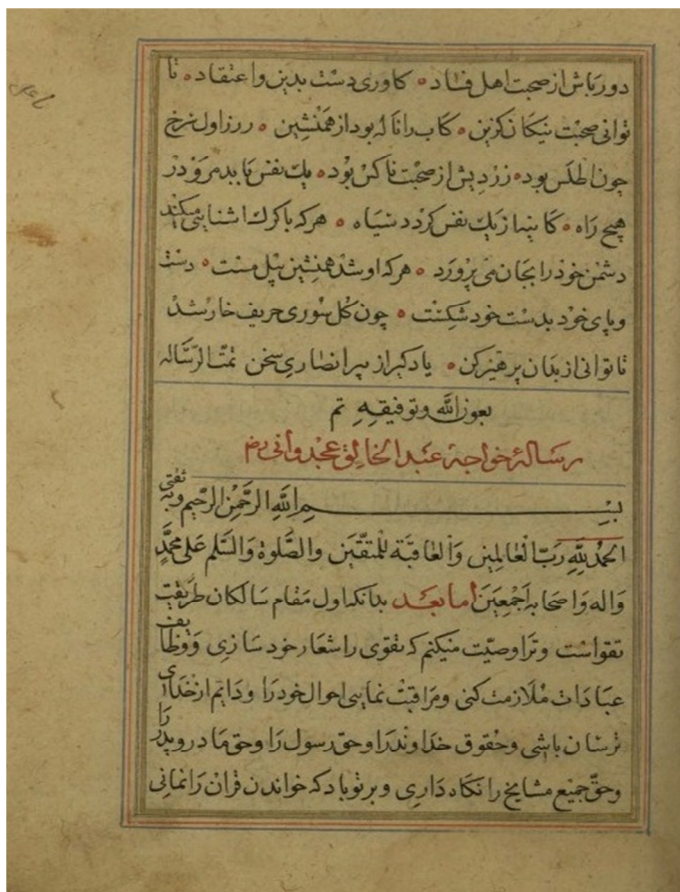 دور باش از صحبت اهل فساد ۰ کاوری دست بدین و اعتقاد ۰ تا
توانی صحبت نیکان گزین ۰ کاب را ناله بود از همنشین ۰ رز اول نرخ
چون اطلس بود ۰ زردیش از صحبت ناکس بود ۰ یک نفس با بد مرو در
هیچ راه ۰ کاینه از یک نفس گردد سیاه ۰ هر که با کرک اشنایی میکند
دشمن خود را بجان می پرورد ۰ هر که او شد همنشین پیل مست ۰ دست
و پای خود بدست خود شکست ۰ چون کل سوری حریف خار شد
تا توانی از بدان پرهیز کن ۰ یاد کیر از پیر انصاری سخن تمت الرساله
بعون الله وتوفیقه تم
رسالهٔ خواجه عبد الخالق عجدوانی رض
بسم الله الرحمن الرحیم وبه ثقتی
الحمد لله رب العالمین والعاقبة للمتقین والصلوة والسلم علی محمد
واله واصحابه اجمعین اما بعد بدانکه اول مقام سالکان طریقت
تقواست وترا وصیت میکنم که تقوی را شعار خود سازی ووظایف
عبادات ملازمت کنی ومراقبت نمایی احوال خود را ودایم از خدای
ترسان باشی وحقوق خداوند را وحق رسول را وحق مادر وپدر را
وحق جمیع مشایخ را نکاه داری وبر تو باد که خواندن قران را نمانی